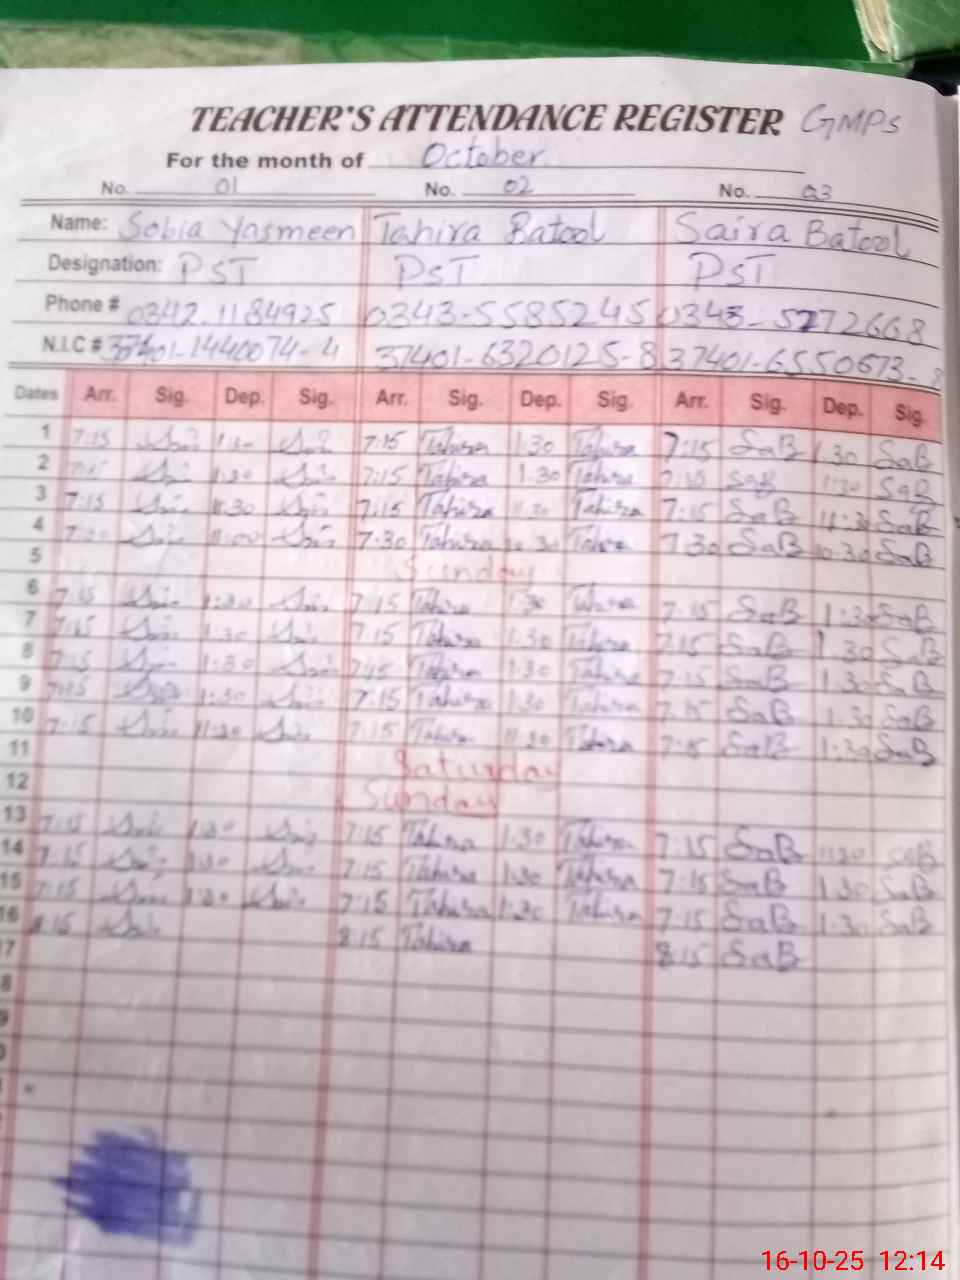 TEACHER'S ATTENDANCE REGISTER GMPS
For the month of October
No. 01 No. 02 No. 03
Name: Sobia Yasmeen Tahira Batool Saira Batool
Designation: PST PST PST
Phone # 0342.1184925 0343-5585245 0343-5272668
N.I.C # 37401-1440074-4 37401-6320125-8 37401-6550673-8
Dates Arr. Sig. Dep. Sig. Arr. Sig. Dep. Sig. Arr. Sig. Dep. Sig.
1 7:15 1:30 7:15 Tahira 1:30 Tahira 7:15 SaB 1.30 SaB
2 1:30 7:15 Tahira 1:30 Tahira 7:15 SaB 1:30 SaB
3 7:15 11:30 7:15 Tahira 11:30 Tahira 7:15 SaB 11:30 SaB
4 11:00 7:30 Tahira 10:30 Tahira 7.30 SaB 10:30 SaB
5 Sunday
6 7:15 1:30 7:15 Tahira 1:30 Tahira 7:15 SaB 1:30 SaB
7 7:15 1:30 7:15 Tahira 1:30 Tahira 7:15 SaB 1.30 SaB
8 7:15 1:30 7:15 Tahira 1:30 Tahira 7:15 SaB 1:30 SaB
9 7:15 1:30 7:15 Tahira 1:30 Tahira 7:15 SaB 1:30 SaB
10 7:15 11:30 7:15 Tahira 11:30 Tahira 7:15 SaB 1:30 SaB
11 Saturday
12 Sunday
13 7:15 1:30 7:15 Tahira 1:30 Tahira 7:15 SaB 1:30 SaB
14 7:15 1:30 7:15 Tahira 1:30 Tahira 7:15 SaB 1:30 SaB
15 7:15 1:30 7:15 Tahira 1:30 Tahira 7:15 SaB 1:30 SaB
16 8:15 8:15 Tahira 8:15 SaB
17
8
9
16-10-25 12:14